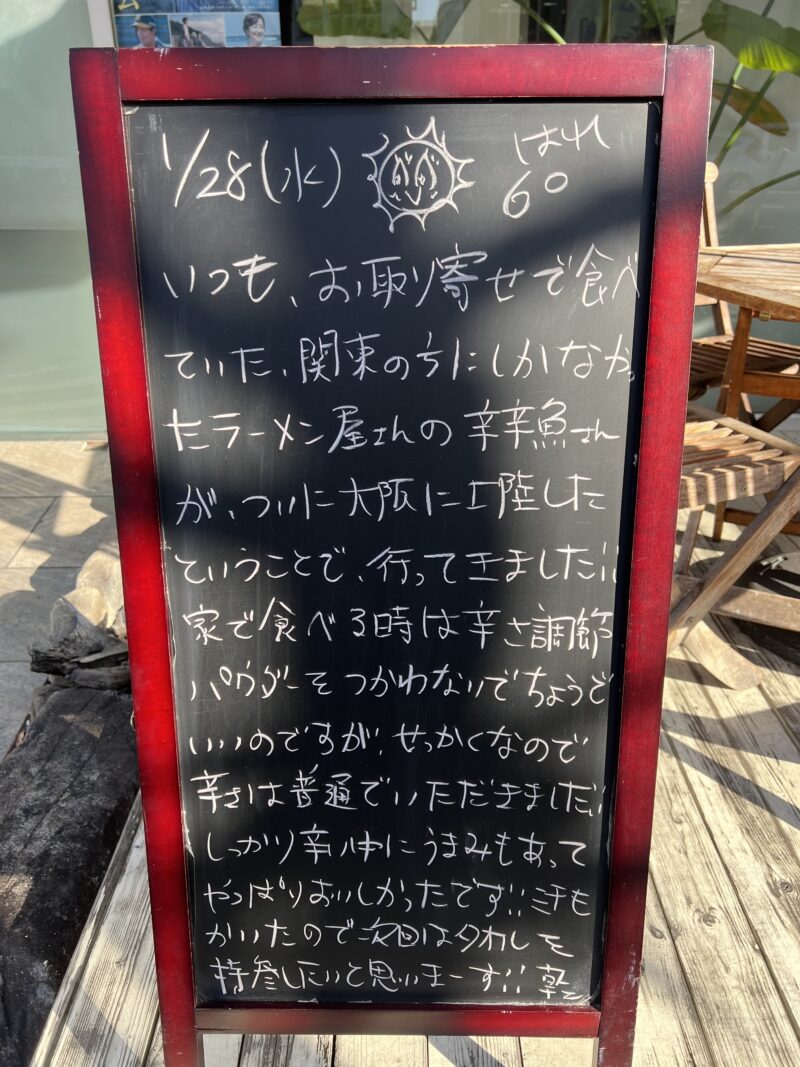 1/28(水) はれ 6°
いつも、お取り寄せで食べ
ていた、関東の方にしかなかっ
たラーメン屋さんの辛辛魚さん
が、ついに大阪に上陸した
ということで、行ってきました!!
家で食べる時は辛さ調節
パウダーをつかわないでちょうど
いいのですが、せっかくなので
辛さは普通でいただきました!!
しっかり辛い中にうまみもあって
やっぱりおいしかったです!!ミチも
かいたので次回はタオルを
持参したいと思いまーす!! 乾